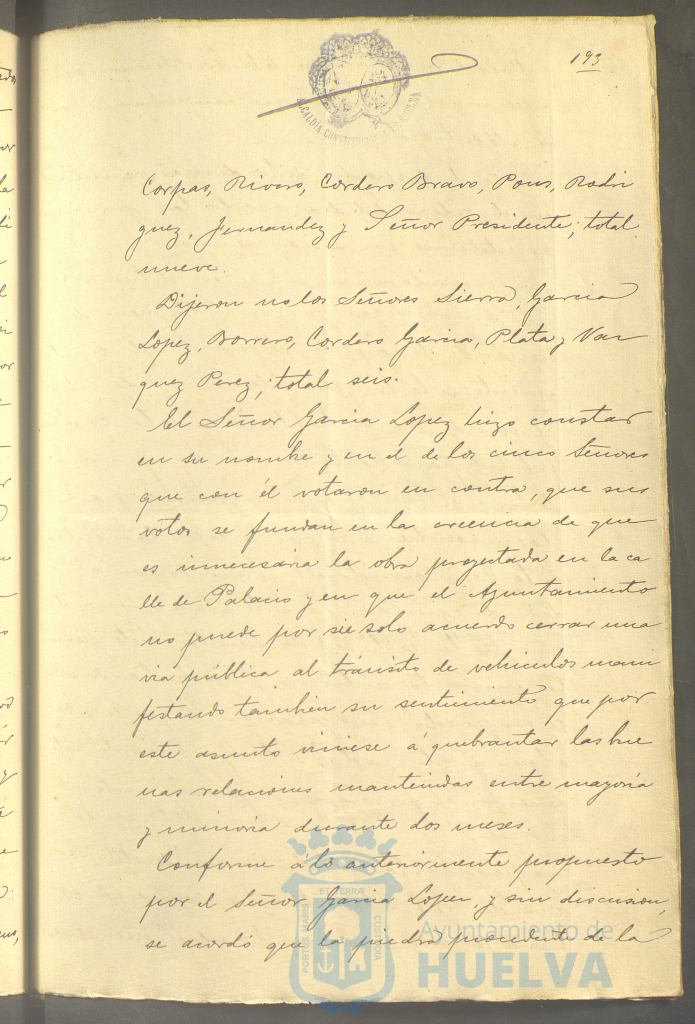 193
ALCALDÍA CONSTITUCIONAL DE HUELVA
Corpas, Rivero, Cordero Bravo, Pons, Rodri
guez, Fernandez y Señor Presidente; total
nueve.
Dijeron no los Señores Sierra, Garcia
Lopez, Borrero, Cordero Garcia, Plata y Vaz
quez Perez; total seis.
El Señor Garcia Lopez hizo constar
en su nombre y en el de los cinco Señores
que con él votaron en contra, que sus
votos se fundan en la creencia de que
es innecesaria la obra proyectada en la ca
lle de Palacio y en que el Ayuntamiento
no puede por si solo acuerdo cerrar una
via pública al tránsito de vehiculos mani
festando tambien su sentimiento que por
este asunto viniese á quebrantar las bue
nas relaciones mantenidas entre mayoría
y minoría durante dos meses.
Conforme á lo anteriormente propuesto
por el Señor Garcia Lopez, y sin discusion,
se acordó que la piedra procedente de la
PORTUS MARIS ET TERRAE CUSTODIA
Ayuntamiento de
HUELVA